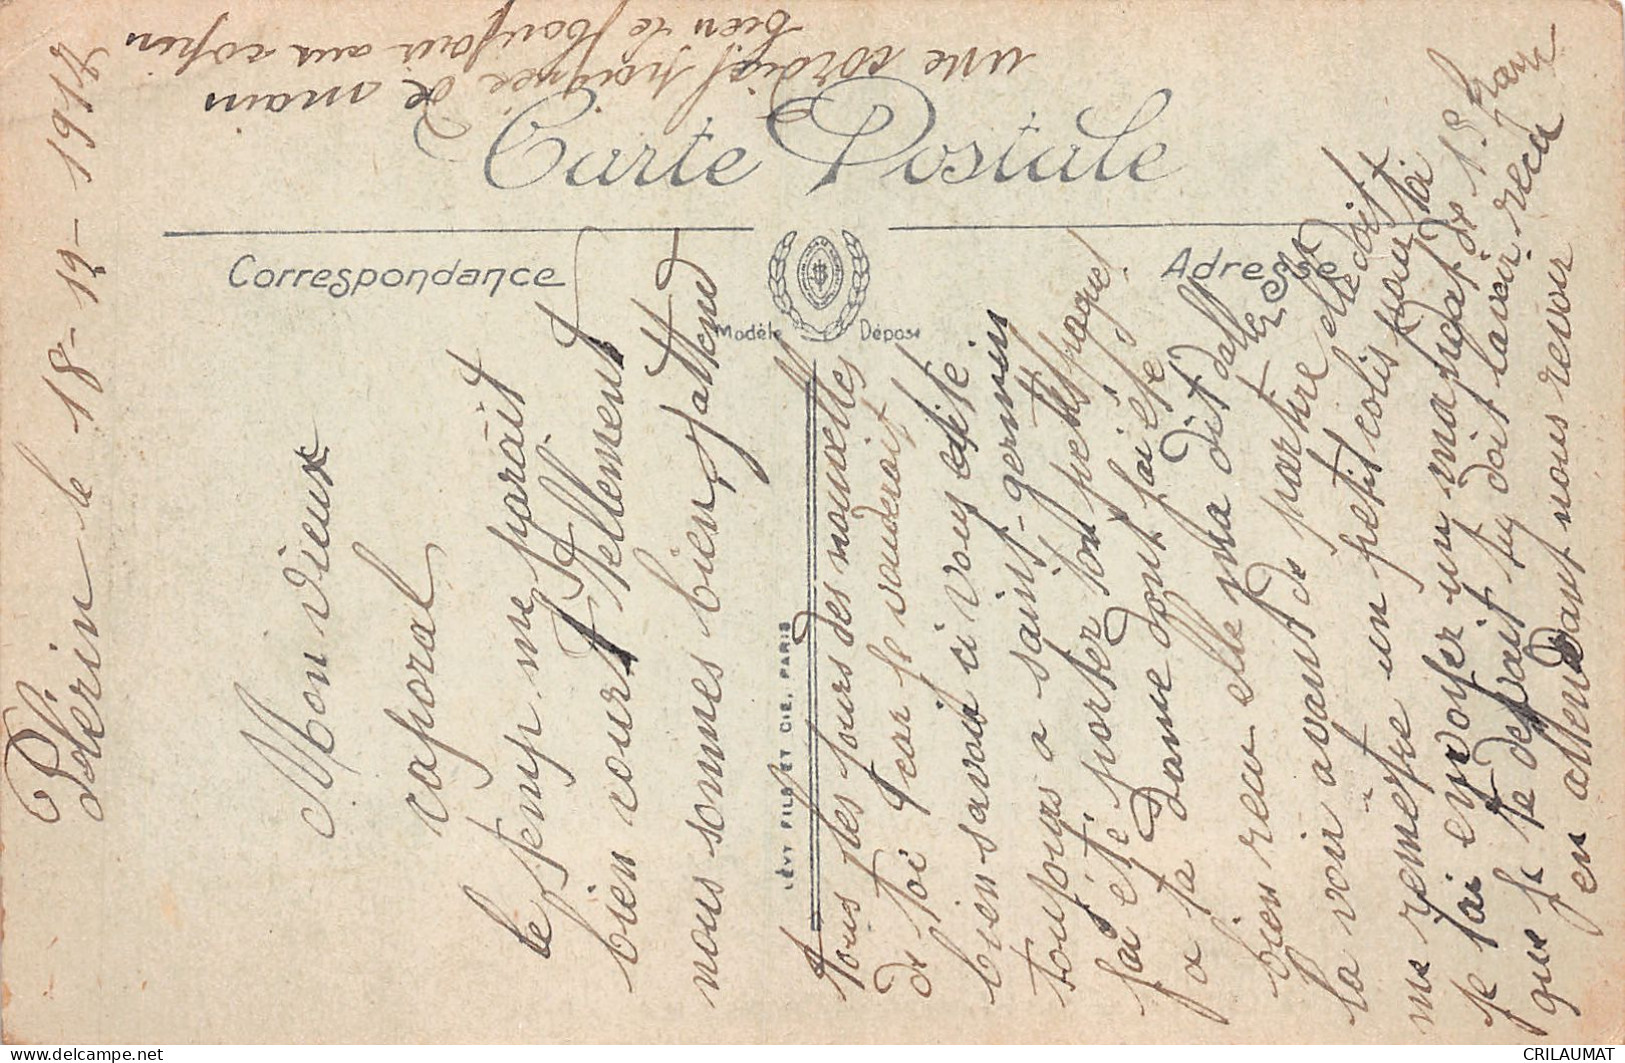 Plérin le 18-12-1917
Mon vieux
caporal
le temp me parait
bien court tellement
nous sommes bien jattend
tous les jours des nouvelles
de toi car je vouderait
bien savoir ci vous ete
toujours a saint-germin
j'ai été porter ton paquet
a ta Dame dont j'ai été
bien reçu elle ma dit d'aller
la voir avant de partire elle doit
me remettre un petit colis pour toi
je j'ai envoyer un mandat de 15 franc
que je te devait tu doit l'avoir recu
en attendant nous revoir
une cordial poignée de main
bien le bonjour aux copin
Carte Postale
Correspondance
Adresse
Modèle Déposé
LÉVY FILS ET CIE, PARIS
CRILAUMAT